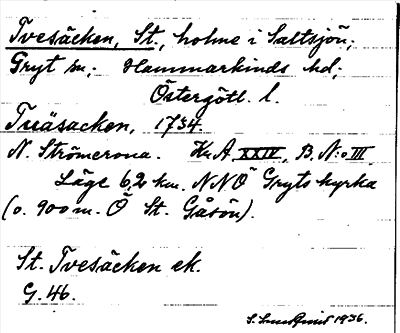 Tvesäcken, St., holme i Saltsjön;
Gryt sn; Hammarkinds hd;
Östergötl. l.
Tuäsacken, 1734.
N. Strömcrona. Ks. A XXIV, B. N:o III
Läge 6,2 km. NNÖ Gryts kyrka
(o. 900 m. Ö St. Gåsön).
St. Tvesäcken ek.
G. 46.
S. 1936.